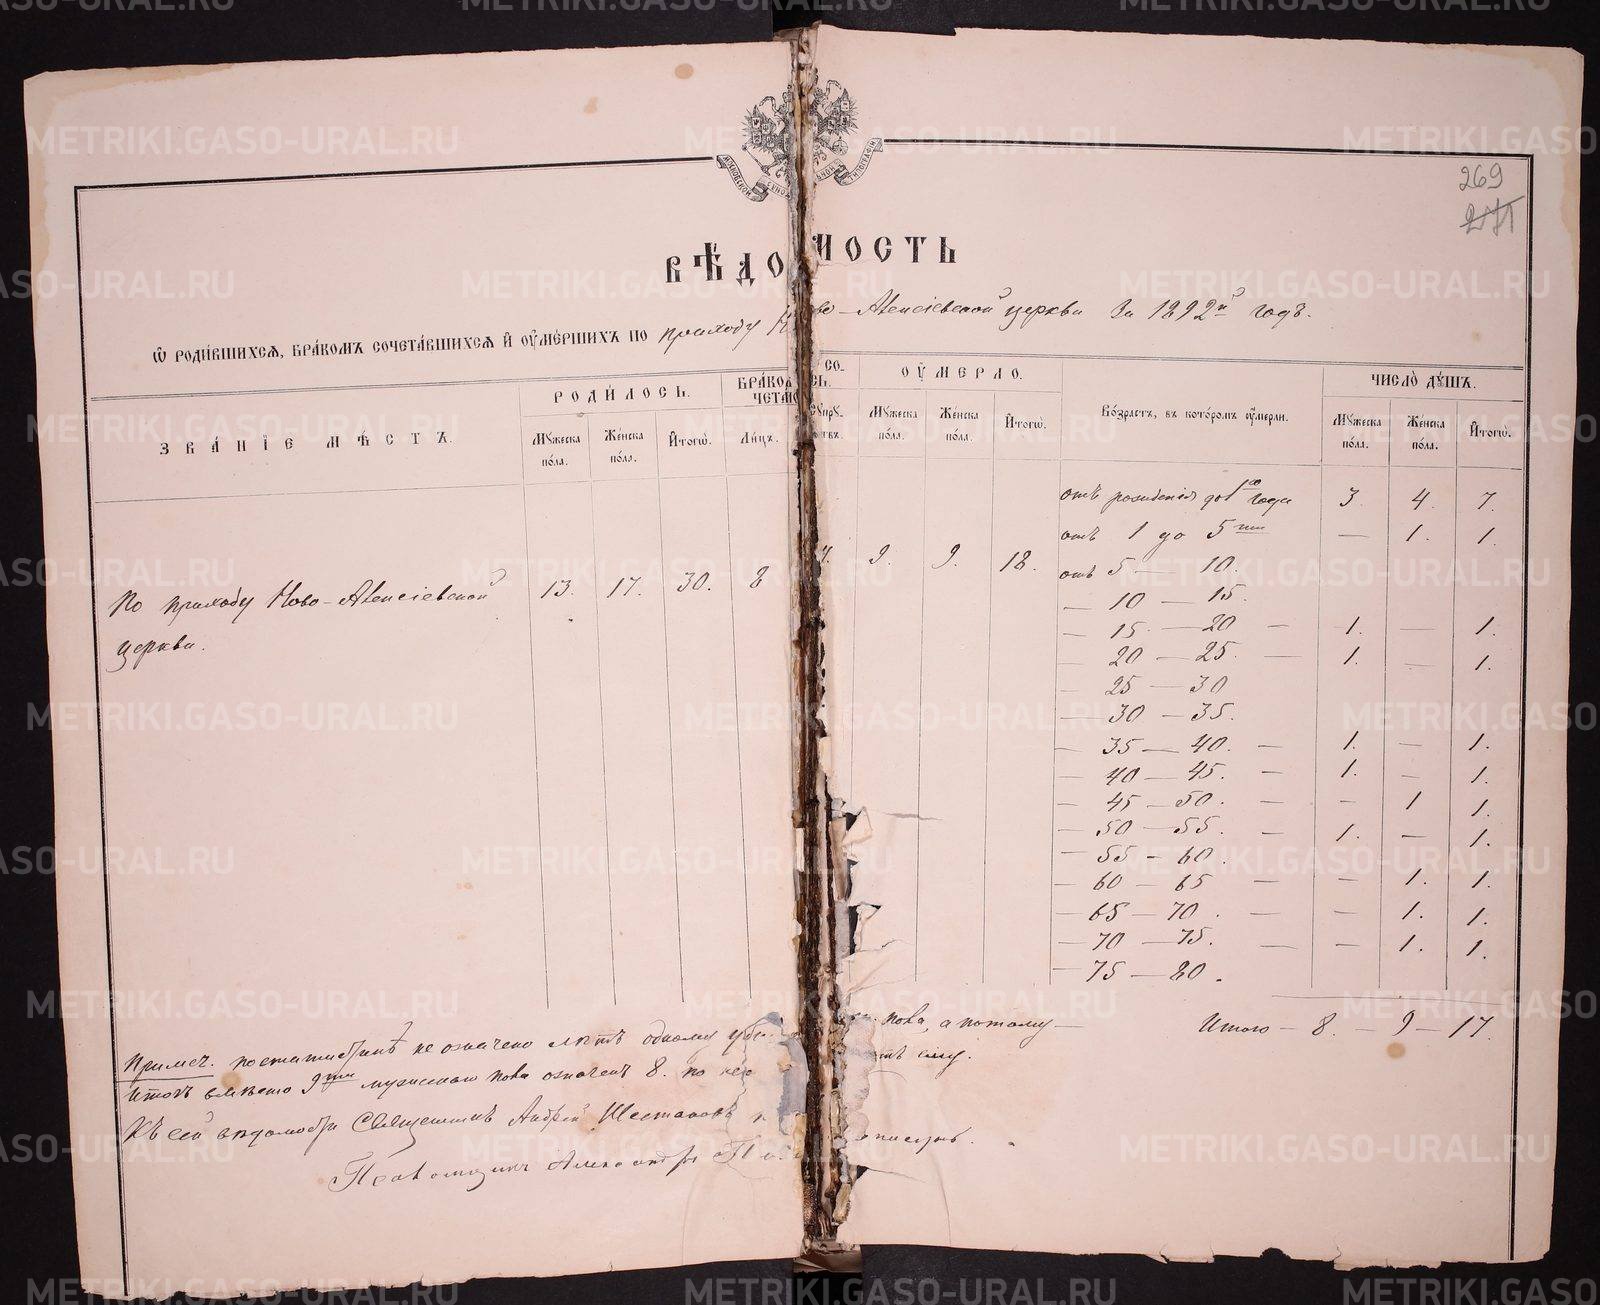 269
271
МОСКОВСКОЙ СУНОДАЛЬНОЙ ТИПОГРАФІИ
ВѢДОМОСТЬ
Ѡ РОДИ́ВШИХСѦ, БРА́КОМЪ СОЧЕТА́ВШИХСѦ И҆ ОУ҆МЕ́РШИХЪ ПО приходу Ново-Алексіевской церкви за 1892й годъ.
ЗВА́НІЕ МѢ́СТЪ.
РОДИ́ЛОСЬ.
Мꙋ́жеска по́ла.
Же́нска по́ла.
И҆тогѡ̀.
БРА́КОМЪ СО-
ЧЕТА́ЛОСЬ.
Ли́цъ.
Сꙋпрꙋ-
жествъ.
ОУ҆́МЕРЛО.
Мꙋ́жеска по́ла.
Же́нска по́ла.
И҆тогѡ̀.
Во́зрастъ, въ кото́ромъ оу҆́мерли.
ЧИСЛО̀ ДꙊ́ШЪ.
Мꙋ́жеска по́ла.
Же́нска по́ла.
И҆тогѡ̀.
По приходу Ново-Алексіевской 13. 17. 30. 8 4. 9. 9. 18.
церкви.
отъ рожденія до 1го года 3 4. 7.
отъ 1 до 5ти — 1. 1.
отъ 5 — 10.
— 10 — 15.
— 15 — 20 — 1. — 1.
— 20 — 25. — 1. — 1.
— 25 — 30
— 30 — 35.
— 35 — 40. — 1. — 1.
— 40 — 45. — 1. — 1.
— 45 — 50. — — 1 1.
— 50 — 55. — 1. — 1.
— 55 — 60.
— 60 — 65 — — 1. 1.
— 65 — 70. — — 1. 1.
— 70 — 75. — — 1. 1.
— 75 — 80.
Итого — 8. — 9 — 17.
Примеч. не означено лѣтъ одному пола, а потому —
итогъ вмѣсто 9ти мужескаго пола означенъ 8. по ему.
Къ сей вѣдомости Священникъ Андрей Шестаковъ
Псаломщикъ Александръ
METRIKI.GASO-URAL.RU